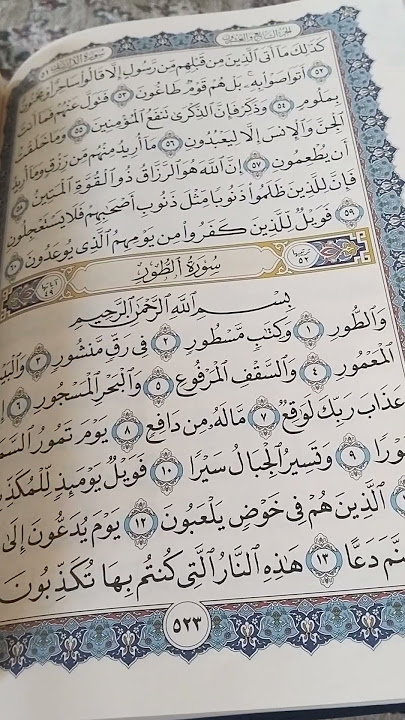 الجزء السابع والعشرون سورة الذاريات ٥١
كَذَٰلِكَ مَا أَتَى الَّذِينَ مِن قَبْلِهِم مِّن رَّسُولٍ إِلَّا قَالُوا سَاحِرٌ أَوْ مَجْنُونٌ
٥٢ أَتَوَاصَوْا بِهِ بَلْ هُمْ قَوْمٌ طَاغُونَ ٥٣ فَتَوَلَّ عَنْهُمْ فَمَا أَنتَ
بِمَلُومٍ ٥٤ وَذَكِّرْ فَإِنَّ الذِّكْرَىٰ تَنفَعُ الْمُؤْمِنِينَ ٥٥ وَمَا خَلَقْتُ
الْجِنَّ وَالْإِنسَ إِلَّا لِيَعْبُدُونِ ٥٦ مَا أُرِيدُ مِنْهُم مِّن رِّزْقٍ وَمَا أُرِيدُ
أَن يُطْعِمُونِ ٥٧ إِنَّ اللَّهَ هُوَ الرَّزَّاقُ ذُو الْقُوَّةِ الْمَتِينُ ٥٨
فَإِنَّ لِلَّذِينَ ظَلَمُوا ذَنُوبًا مِّثْلَ ذَنُوبِ أَصْحَابِهِمْ فَلَا يَسْتَعْجِلُونِ
٥٩ فَوَيْلٌ لِّلَّذِينَ كَفَرُوا مِن يَوْمِهِمُ الَّذِي يُوعَدُونَ ٦٠
ترتيبها ٥٢ سُورَةُ الطُّورِ آياتها ٤٩
بِسْمِ اللَّهِ الرَّحْمَٰنِ الرَّحِيمِ
وَالطُّورِ ١ وَكِتَابٍ مَّسْطُورٍ ٢ فِي رَقٍّ مَّنشُورٍ ٣
الْمَعْمُورِ ٤ وَالسَّقْفِ الْمَرْفُوعِ ٥ وَالْبَحْرِ الْمَسْجُورِ ٦
عَذَابَ رَبِّكَ لَوَاقِعٌ ٧ مَّا لَهُ مِن دَافِعٍ ٨ يَوْمَ تَمُورُ
٩ وَتَسِيرُ الْجِبَالُ سَيْرًا ١٠ فَوَيْلٌ يَوْمَئِذٍ
الَّذِينَ هُمْ فِي خَوْضٍ يَلْعَبُونَ ١٢ يَوْمَ يُدَعُّونَ إِلَىٰ
دَعًّا ١٣ هَٰذِهِ النَّارُ الَّتِي كُنتُم بِهَا تُكَذِّبُونَ
٥٢٣